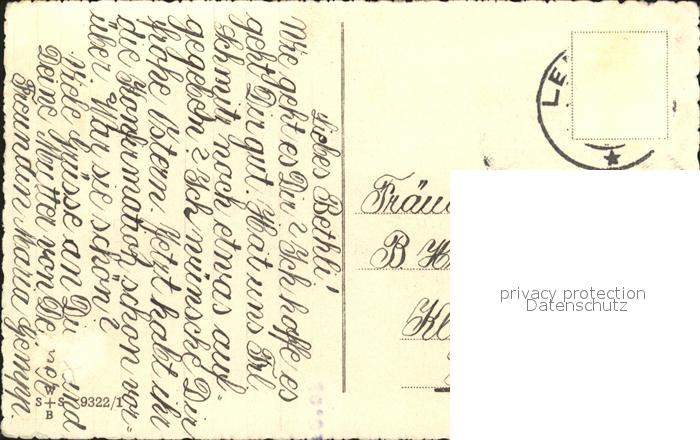 Liebes Bethli!
Wie geht es Dir? Ich hoffe es
geht Dir gut. Hat uns Frl.
Schmitz noch etwas auf-
gegeben? Ich wünsche Dir
frohe Ostern. Jetzt habt ihr
die Konfirmation schon vor-
über. War sie schön?
Viele Grüsse an Di und
Deine Mutter von De
Freundin Maria
LE
Fräu
B. H
Kl
W
S+S 9322/1
B
privacy protection
Datenschutz